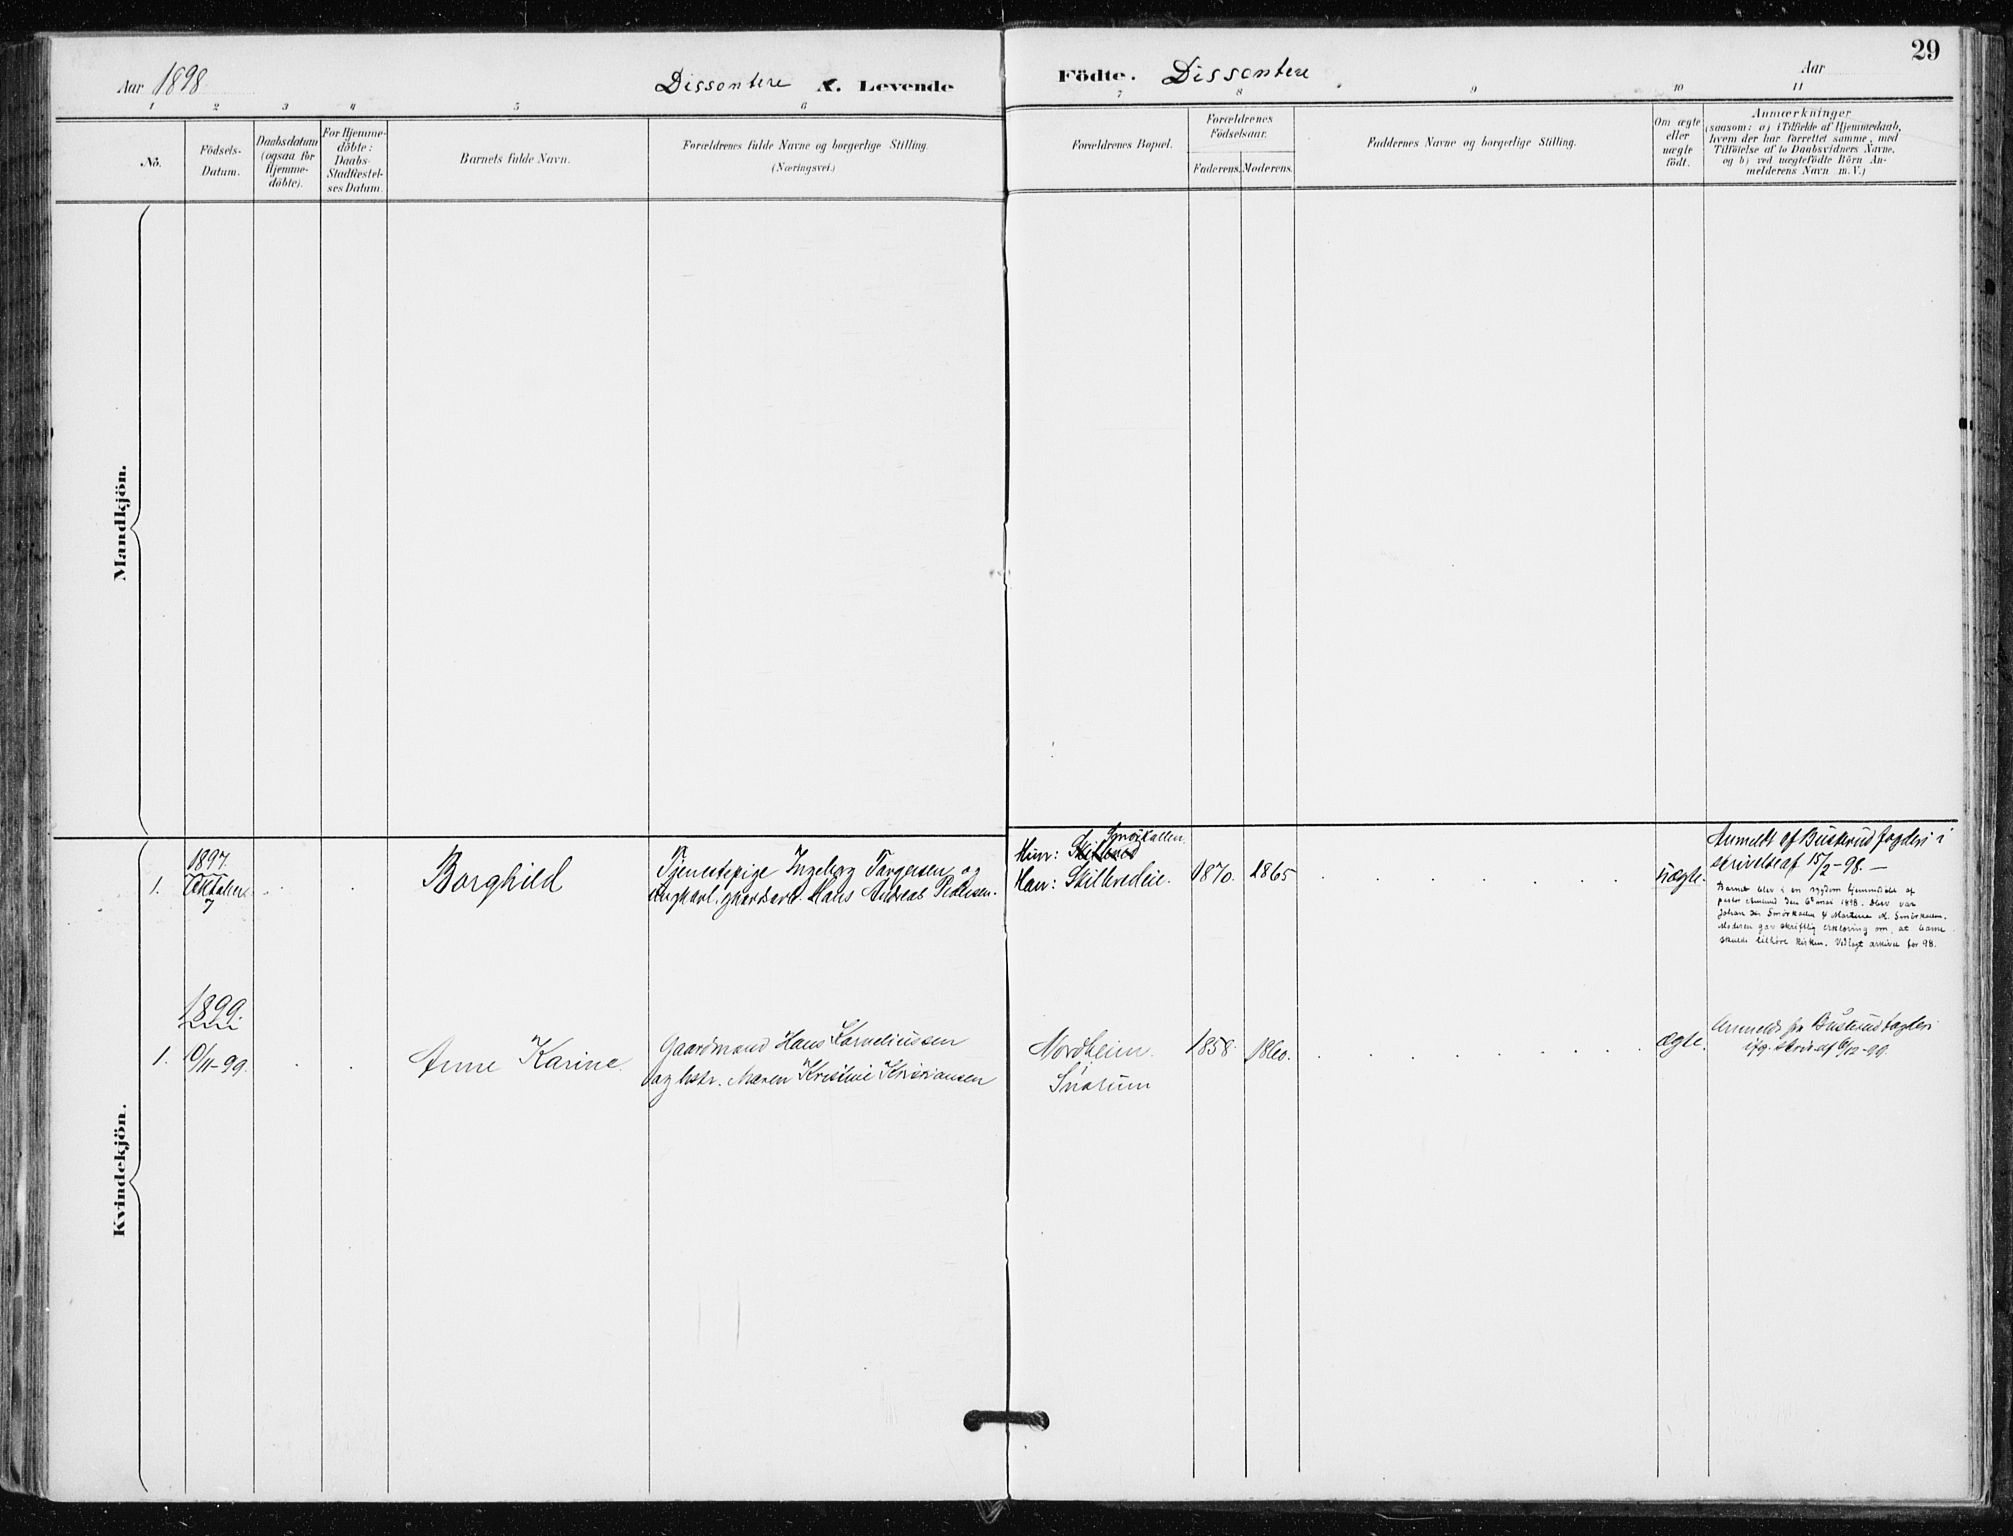 29
Aar 1898
Dissentere A. Levende
Födte. Dissentere
Aar
1 2 3 4 5 6 7 8 9 10 11
No.
Födsels-
Datum.
Daabsdatum
(ogsaa for
Hjemme-
döbte).
For Hjemme-
döbte:
Daabs-
Stadfæstel-
ses Datum.
Barnets fulde Navn.
Forældrenes fulde Navne og borgerlige Stilling.
(Næringsvei.)
Forældrenes Bopæl.
Forældrenes
Födselsaar.
Faderens. Moderens.
Faddernes Navne og borgerlige Stilling.
Om ægte
eller
uægte
födt.
Anmærkninger
(saasom: a) i Tilfælde af Hjemmedaab,
hvem der har forrettet samme, med
Tilföielse af to Daabsvidners Navne,
og b) ved uægtefödte Börn An-
melderens Navn m. V.)
Mandkjön.
Kvindekjön.
1.
1897
Oktober
7
Borghild
Tjenestepige Ingeborg Torgersen og
ungkarl, gaardsarb. Hans Andreas Pedersen.
Smörkollen
Hun:
Han: Skillevedeie.
1870. 1865
uægte.
Anmeldt af Buskerud fogderi i
skrivelse af 15/2-98.-
Barnet blev i en sygdom hjemmedöbt af
pastor den 6te mai 1898. var
Johan Smörkollen & Martine M. Smörkollen.
Moderen gav skriftlig erklæring om, at barnet
skulde tilhöre kirken. Vedlagt arkivet for 98.
1899.
1. 10/11-99.
Anne Karine.
Gaardmand Hans Korneliussen
og hstr. Maren Kristine Kristiansen
Nordheim.
Snarum
1858. 1860.
ægte.
Anmeldt fra Buskerud fogderi
ifg. skriv. af 6/12-99.